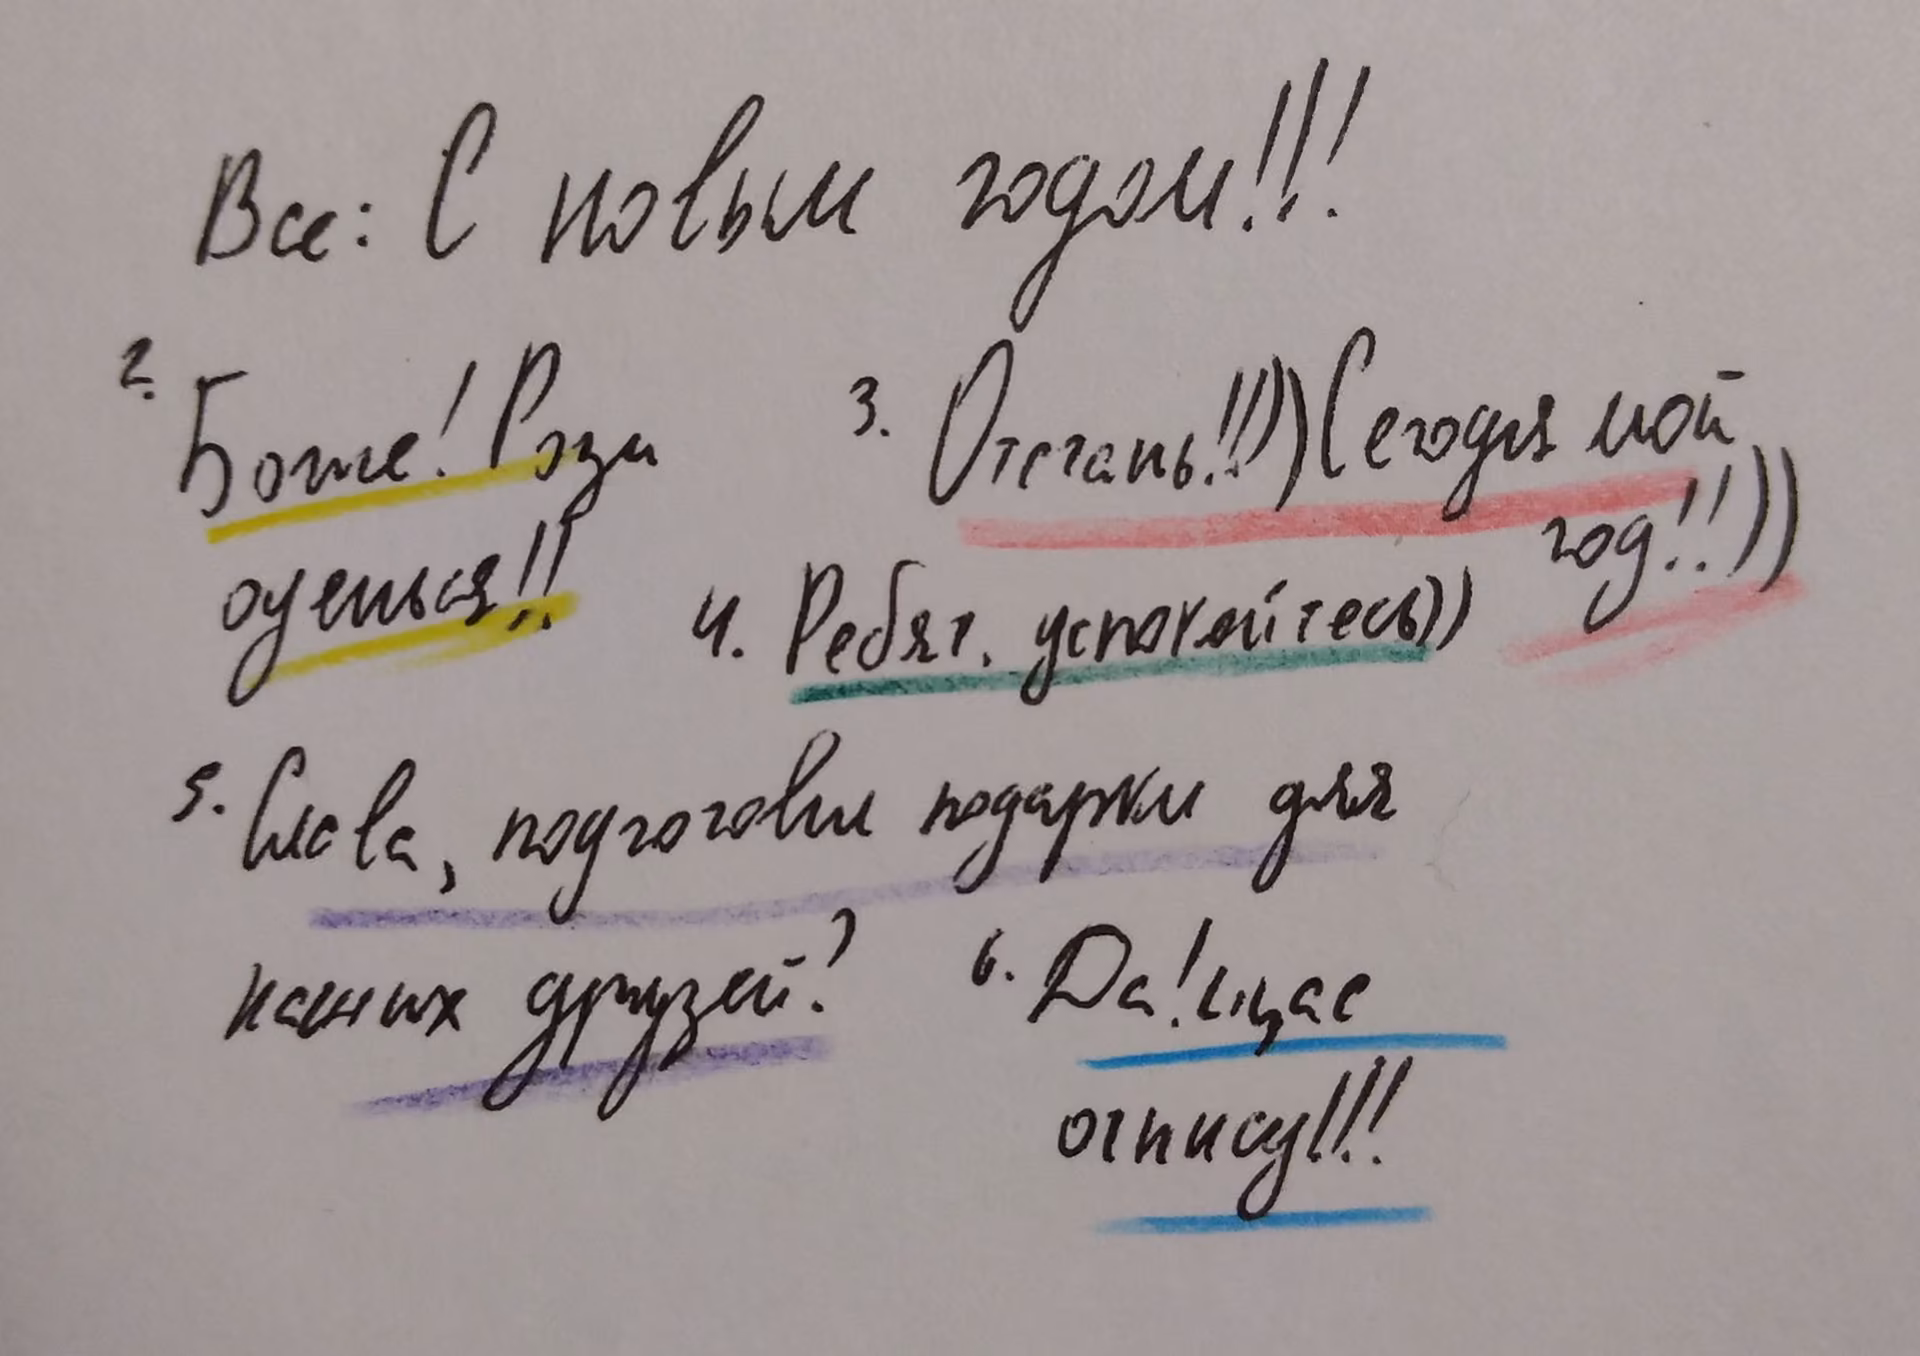 Все: С новым годом!!!
2. Боже! Рози
оденься!!
3. Отстань!!!)) Сегодня мой
год!!))
4. Ребят, успокойтесь))
5. Слава, подготовил подарки для
наших друзей?
6. Да! щас
отпишу!!!